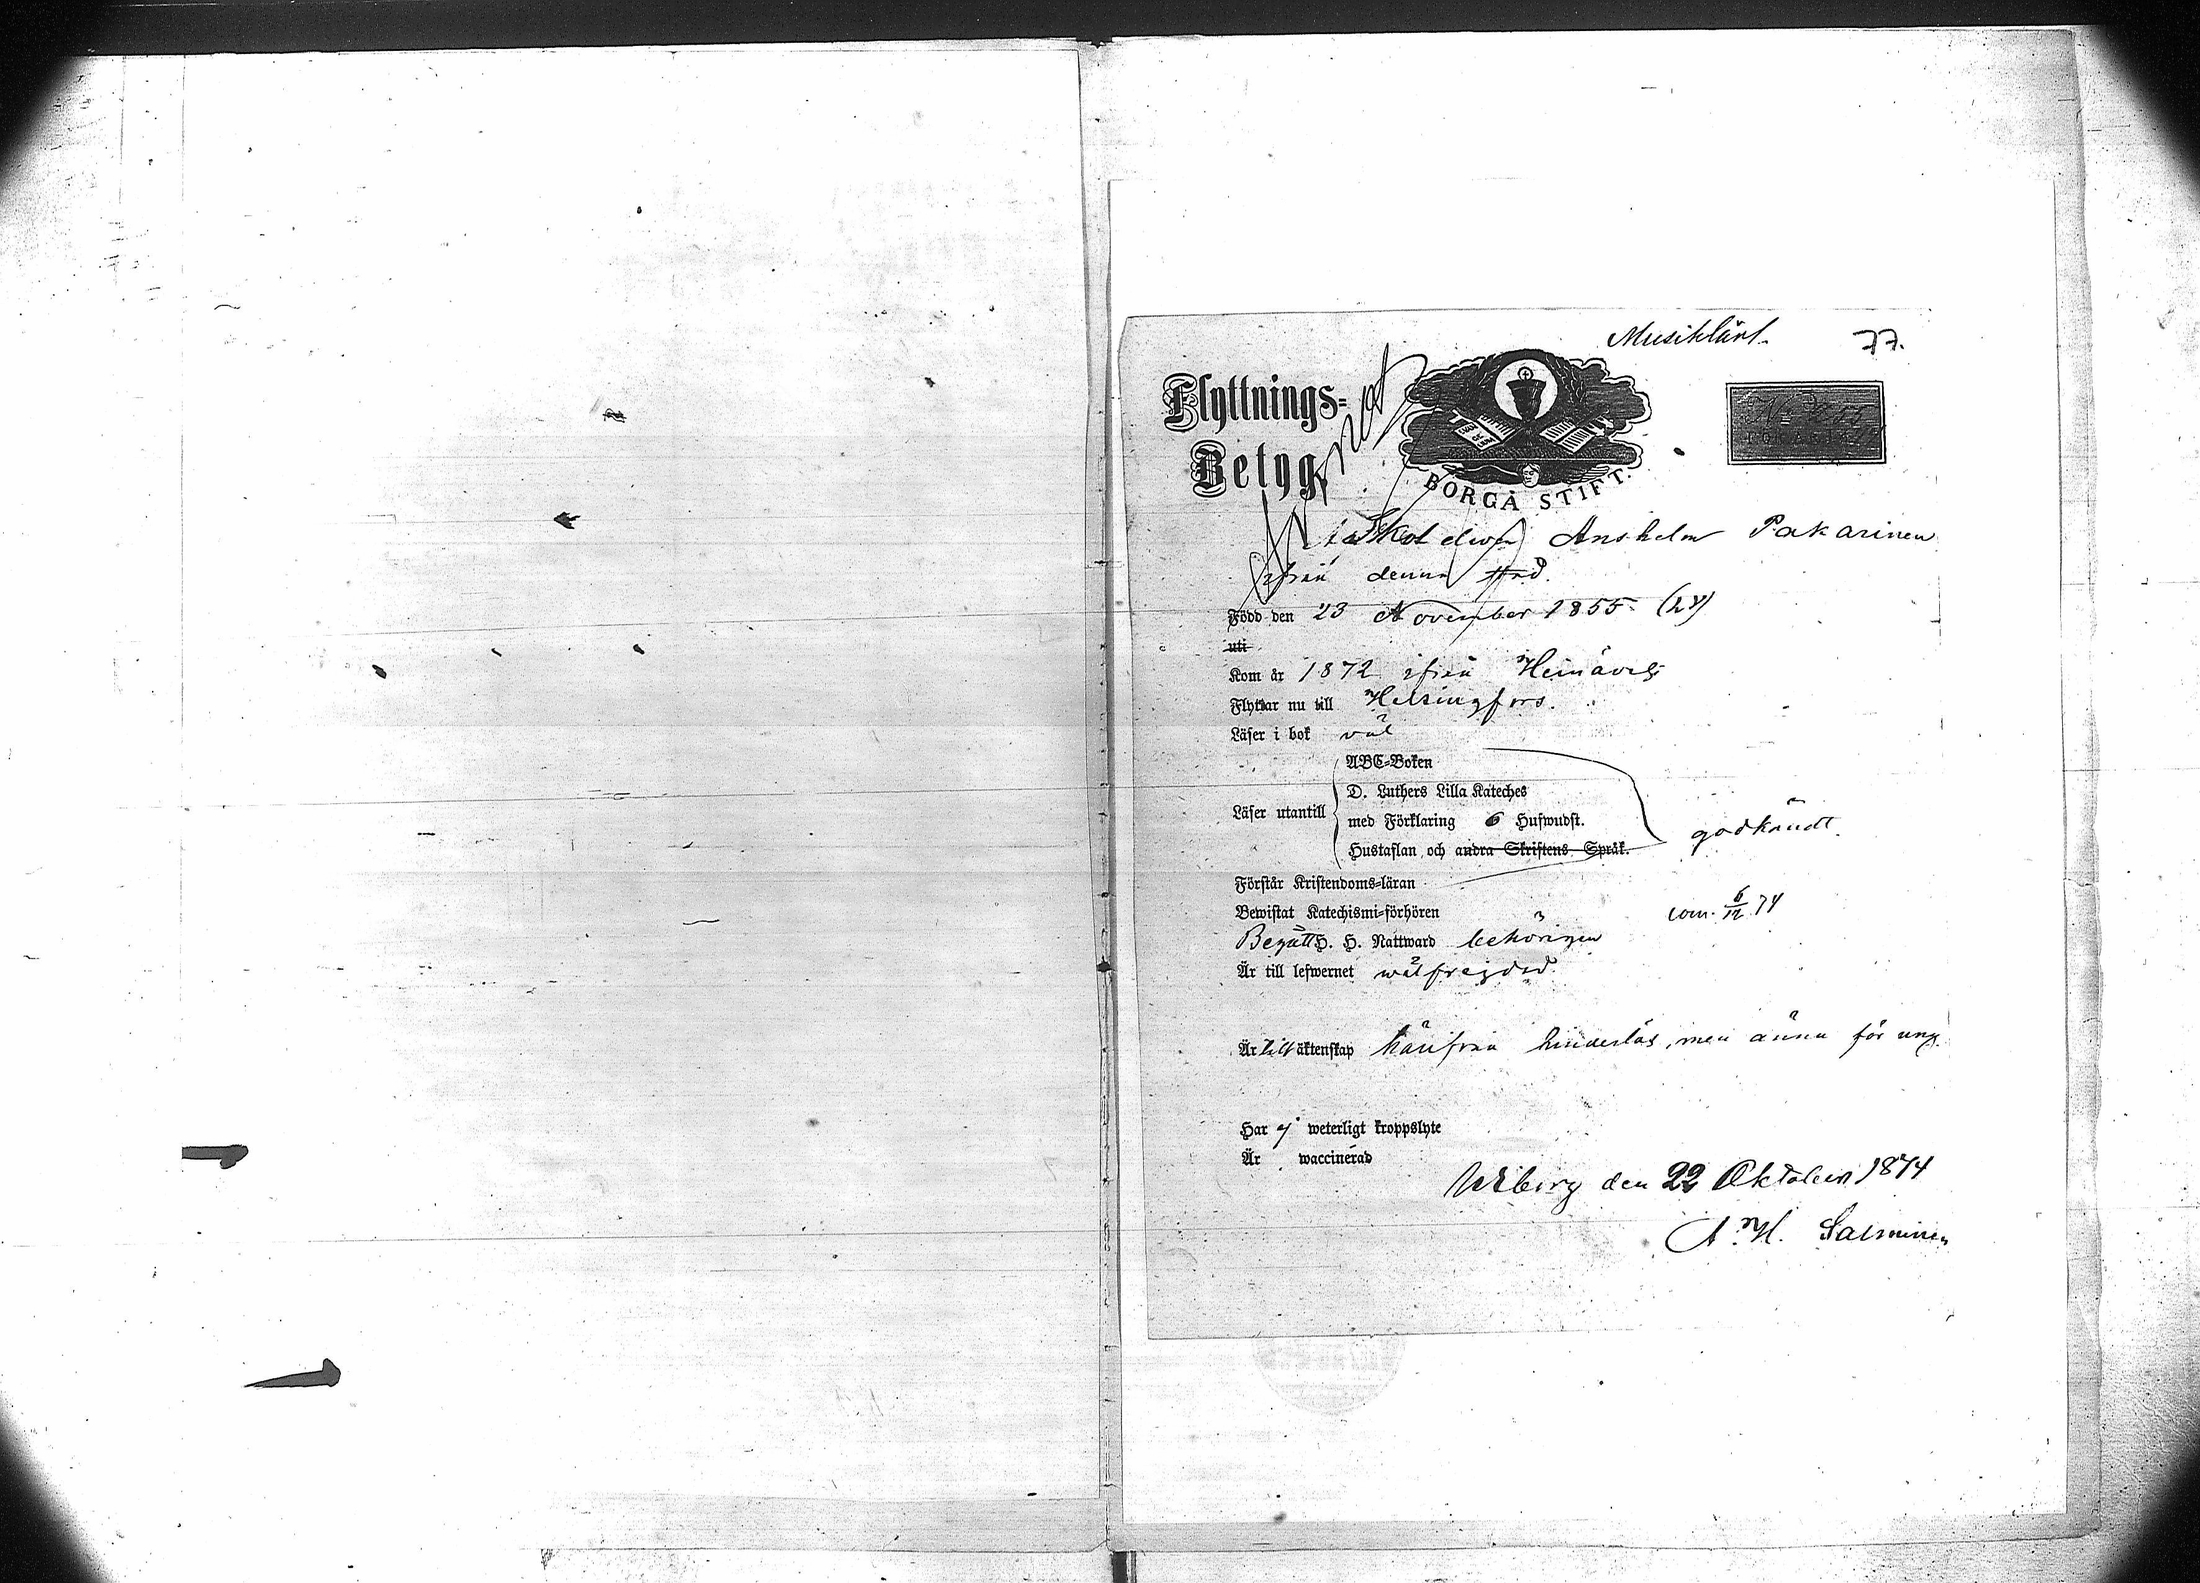 Musiklärl.
77.
Flyttnings-
Betyg
EVAN
GE
LIUM
BORGÅ STIFT.
No 255
Skol elven Anshelm Pakarinen
ifrån denna stad.
Född den 23 November 1855 (24)
uti
Kom år 1872 ifrån Heinävesi
Flyttar nu till Helsingfors.
Läser i bok väl
ABC-Boken
D. Luthers Lilla Kateches
Läser utantill
med Förklaring 6 Hufwudst.
godkändt.
Hustaflan och andra Skriftens Språk.
Förstår Kristendoms-läran
Bewistat Katechismi-förhören
com. 6/12 74
Begått H. H. Nattward behörigen
Är till lefwernet wälfrejdad.
Är till äktenskap härifrån hinderlös, men ännu för ung.
Har ej weterligt kroppslyte
Är waccinerad
Wiborg den 22 Oktober 1874
A. H. Salminen